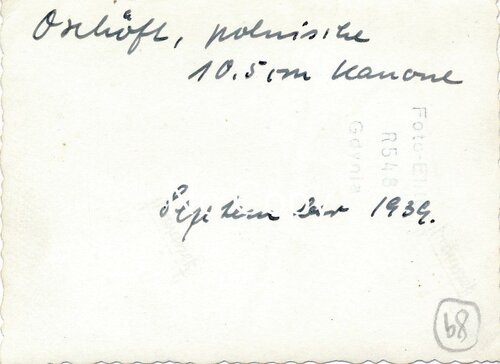 Oxhöft, polnische
10.5 cm Kanone
Foto-El
R548
Gdynia
September 1939.
68